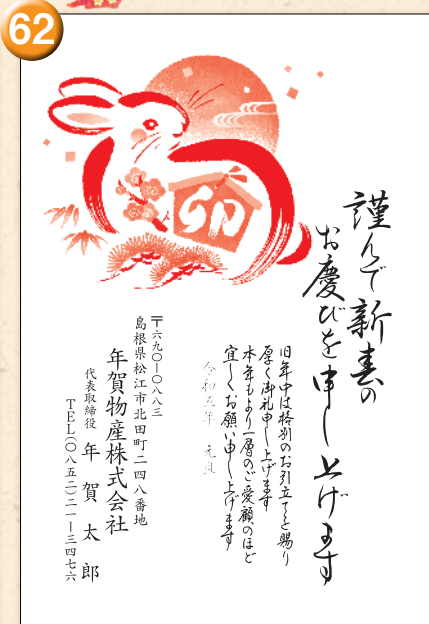 62
卯
謹んで新春の
お慶びを申し上げます
旧年中は格別のお引立てを賜り
厚く御礼申し上げます
本年もより一層のご愛顧のほど
宜しくお願い申し上げます
令和五年 元旦
〒六九〇-〇八八三
島根県松江市北田町二四八番地
年賀物産株式会社
代表取締役 年賀太郎
TEL(〇八五二)二一-三四七六